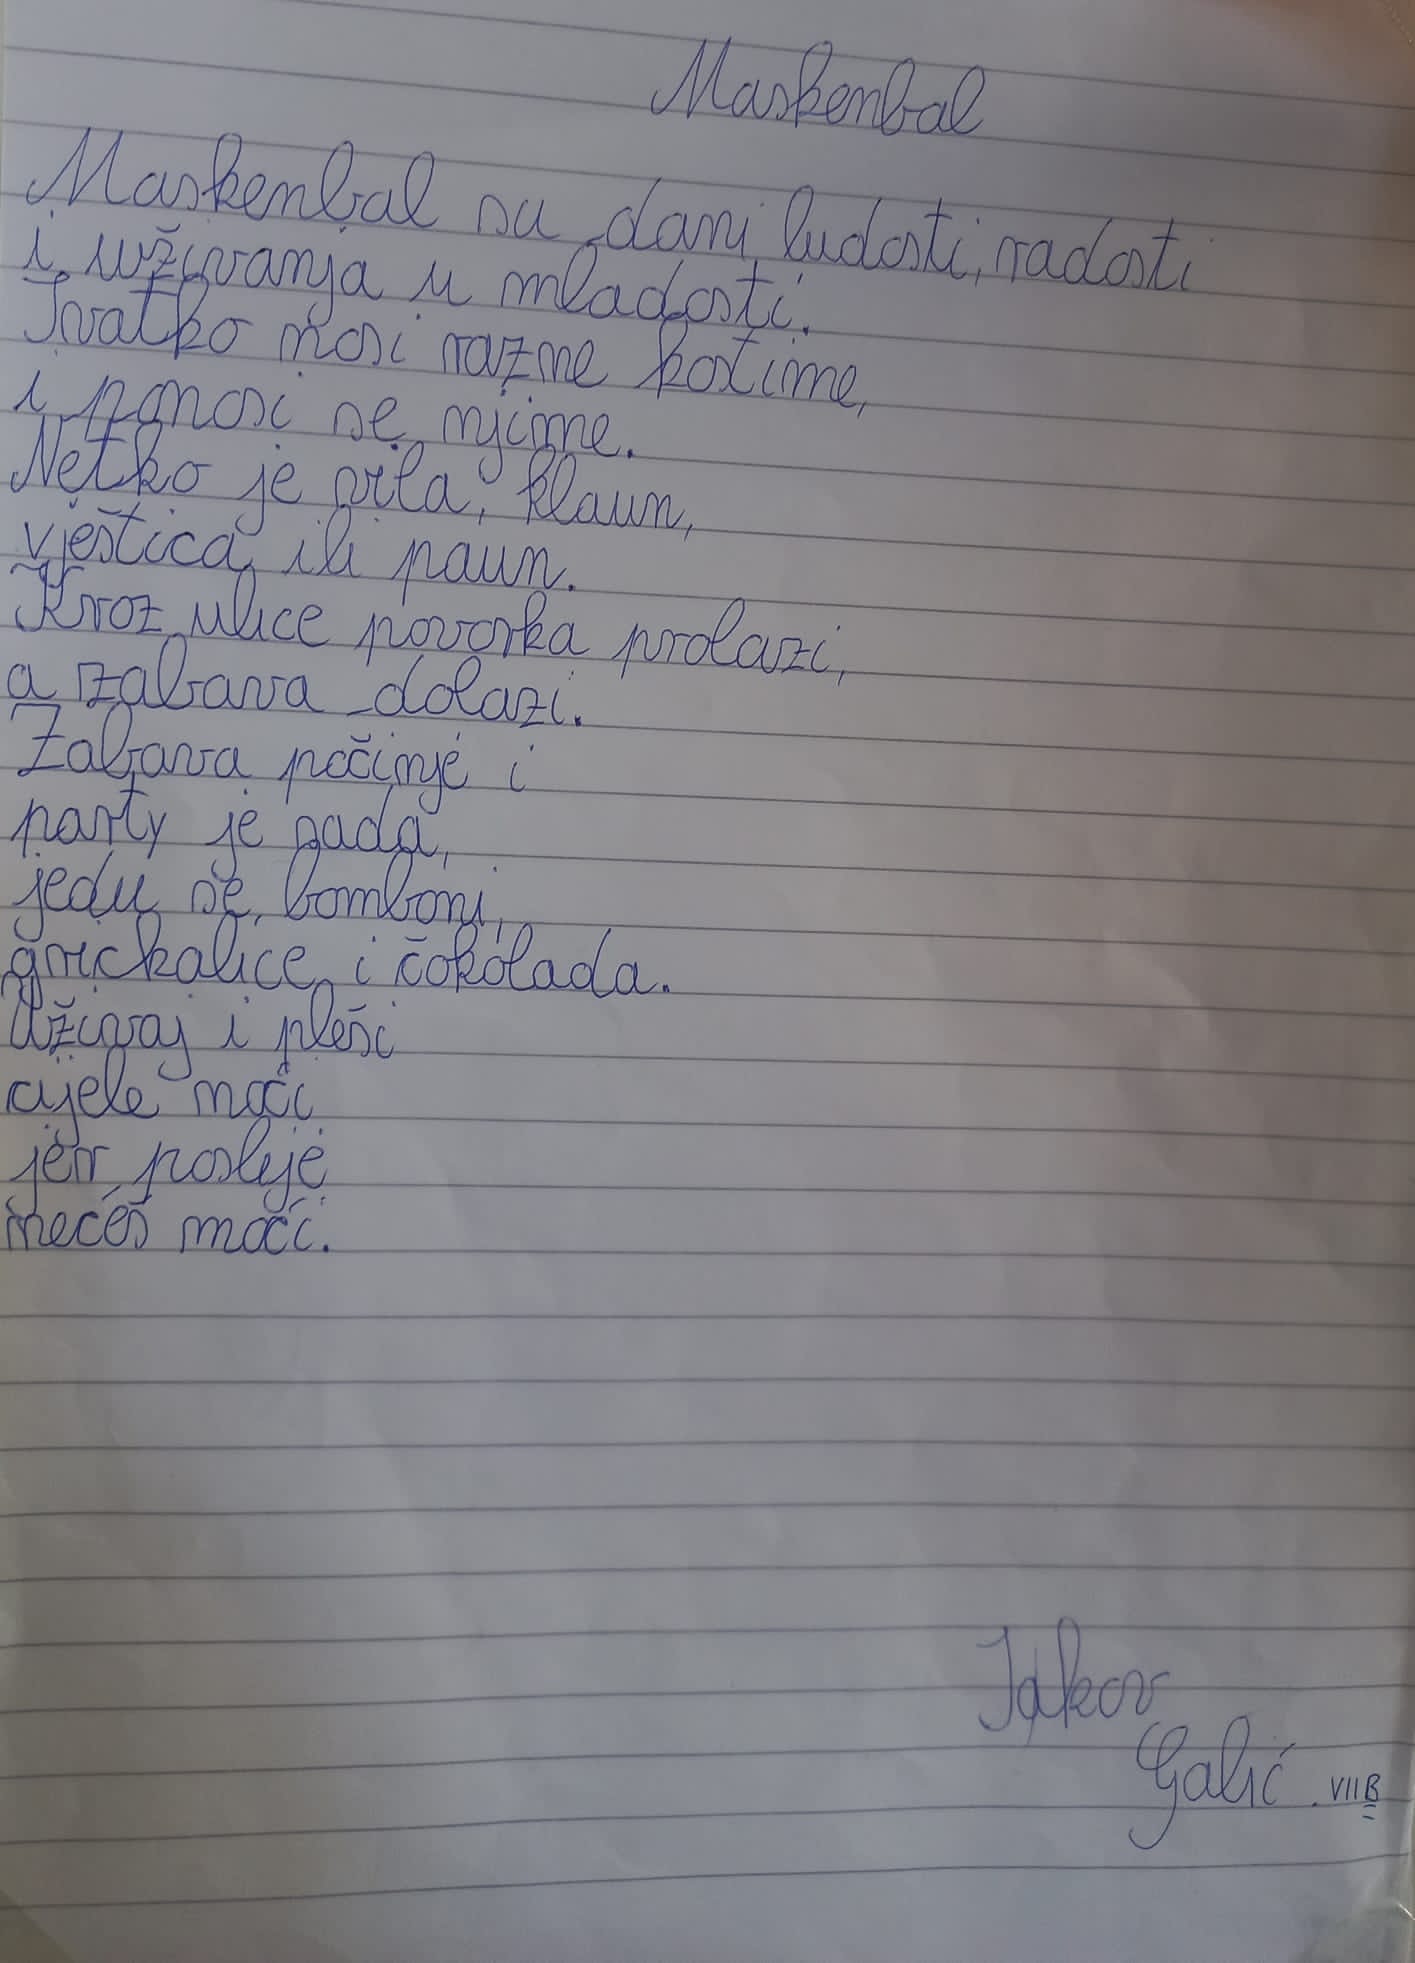 Maskenbal
Maskenbal su dani ludosti, radosti
i uživanja u mladosti.
Svatko nosi razne kostime,
i ponosi se njime.
Netko je vila, klaun,
vještica ili paun.
Kroz ulice povorka prolazi,
a zabava dolazi.
Zabava počinje i
party je sada,
jedu se bomboni,
grickalice i čokolada.
Uživaj i pleši
cijele noći
jer poslije
nećeš moći.
Jakov
Galić. VII B